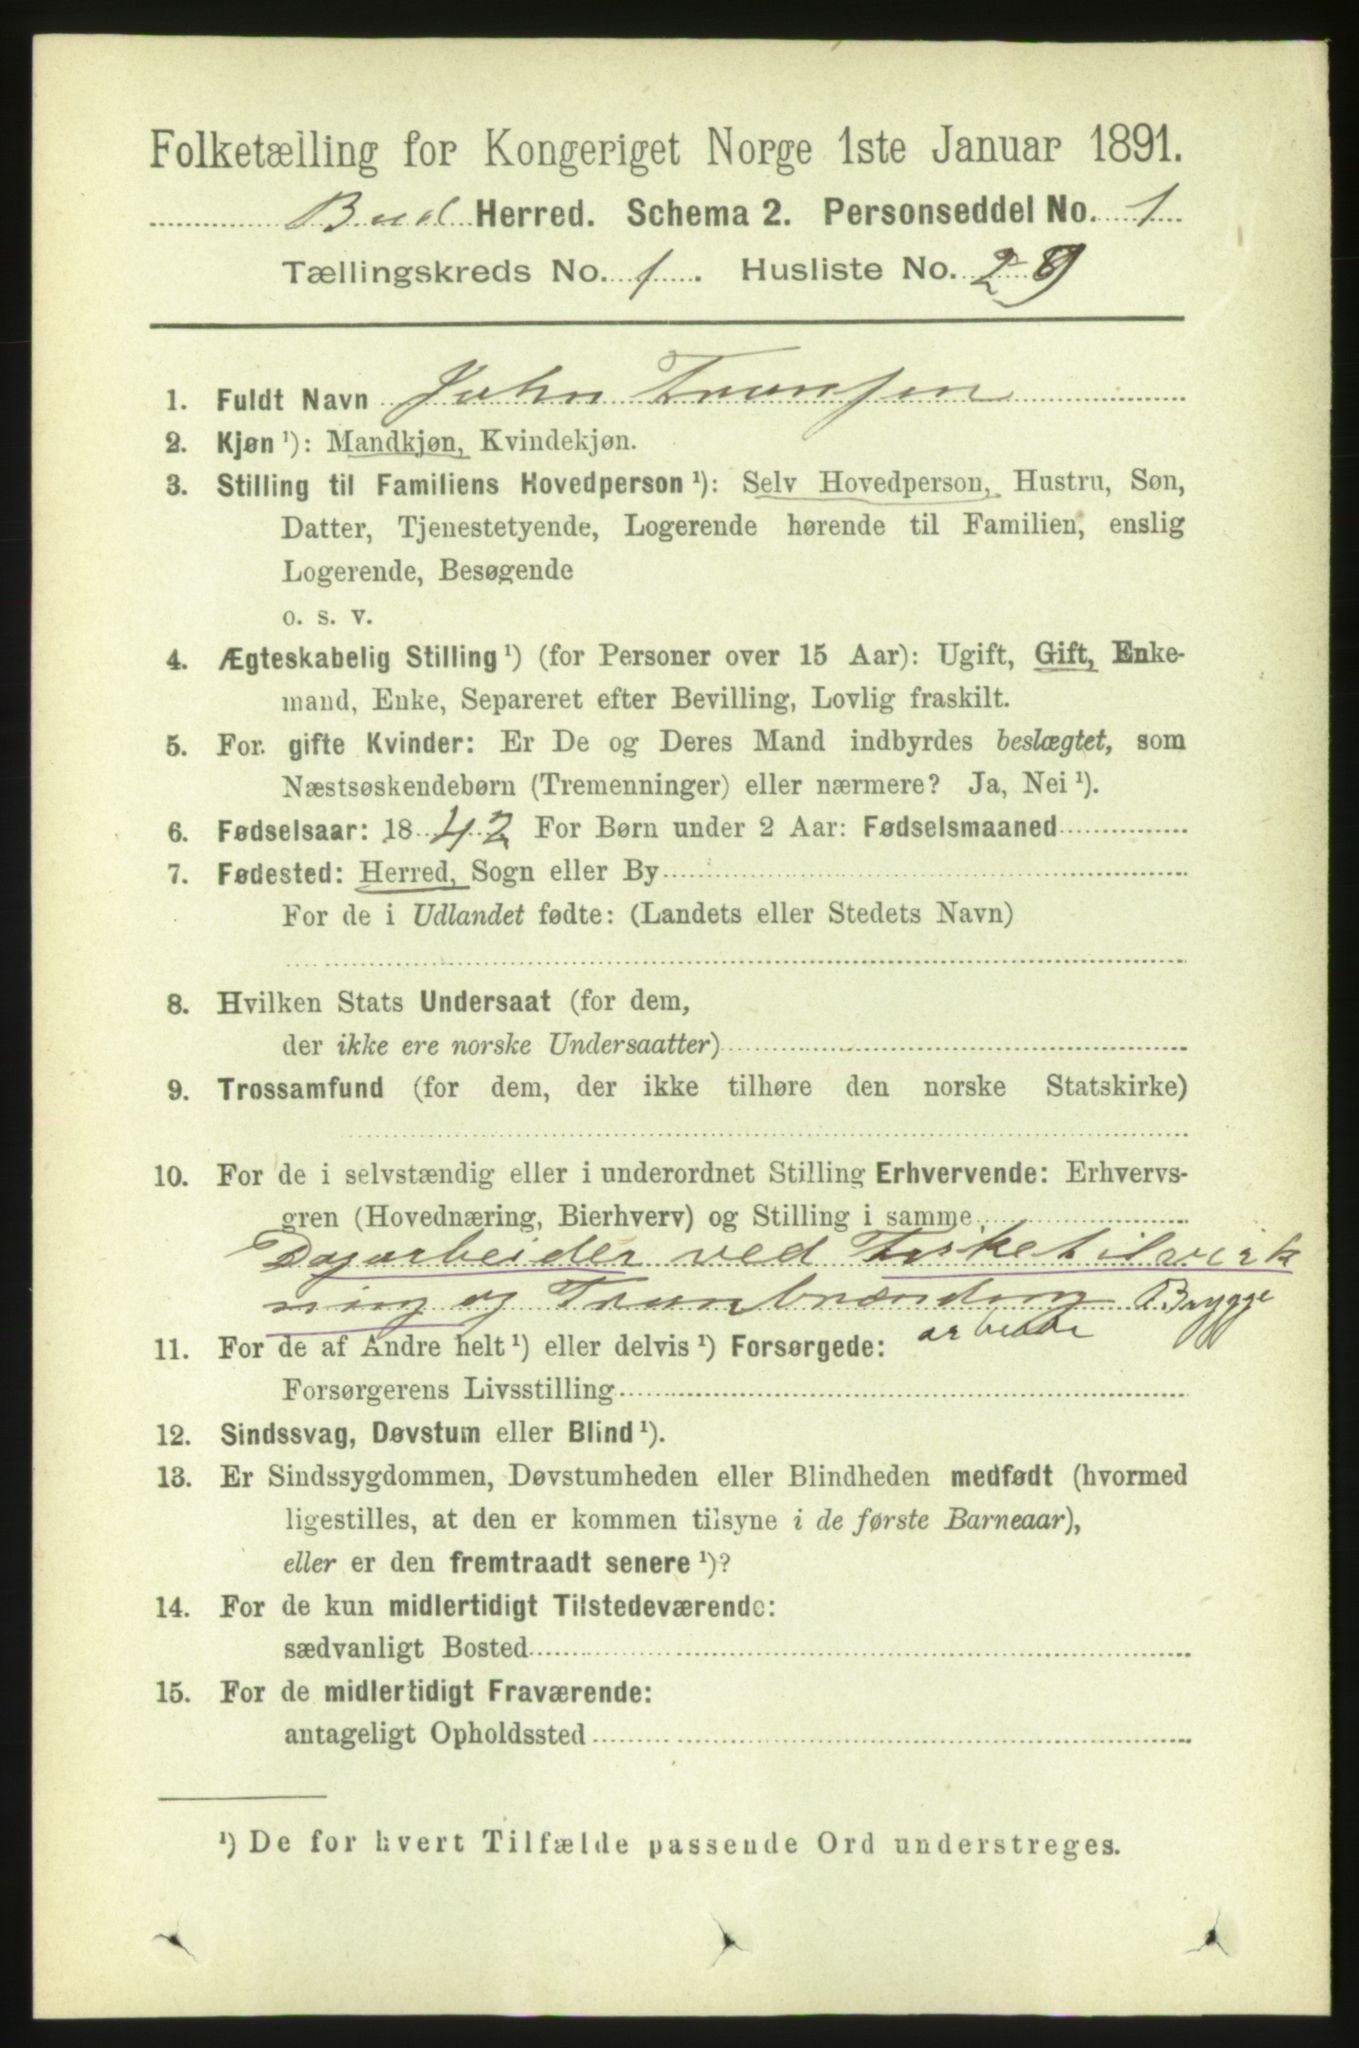 Folketælling for Kongeriget Norge 1ste Januar 1891.
Bud Herred. Schema 2. Personseddel No. 1
Tællingskreds No. 1. Husliste No. 29
1. Fuldt Navn John Tronsen
2. Kjøn ¹): Mandkjøn, Kvindekjøn.
3. Stilling til Familiens Hovedperson ¹): Selv Hovedperson, Hustru, Søn,
Datter, Tjenestetyende, Logerende hørende til Familien, enslig
Logerende, Besøgende
o. s. v.
4. Ægteskabelig Stilling ¹) (for Personer over 15 Aar): Ugift, Gift, Enke-
mand, Enke, Separeret efter Bevilling, Lovlig fraskilt.
5. For gifte Kvinder: Er De og Deres Mand indbyrdes beslægtet, som
Næstsøskendebørn (Tremenninger) eller nærmere? Ja, Nei ¹).
6. Fødselsaar: 1842 For Børn under 2 Aar: Fødselsmaaned
7. Fødested: Herred, Sogn eller By
For de i Udlandet fødte: (Landets eller Stedets Navn)
8. Hvilken Stats Undersaat (for dem,
der ikke ere norske Undersaatter)
9. Trossamfund (for dem, der ikke tilhøre den norske Statskirke)
10. For de i selvstændig eller i underordnet Stilling Erhvervende: Erhvervs-
gren (Hovednæring, Bierhverv) og Stilling i samme
Dagarbeider ved Fisketilvirk
ning og Tranbrænding Brygge
arbeide
11. For de af Andre helt ¹) eller delvis ¹) Forsørgede:
Forsørgerens Livsstilling
12. Sindssvag, Døvstum eller Blind ¹).
13. Er Sindssygdommen, Døvstumheden eller Blindheden medfødt (hvormed
ligestilles, at den er kommen tilsyne i de første Barneaar),
eller er den fremtraadt senere ¹)?
14. For de kun midlertidigt Tilstedeværende:
sædvanligt Bosted
15. For de midlertidigt Fraværende:
antageligt Opholdssted
¹) De for hvert Tilfælde passende Ord understreges.